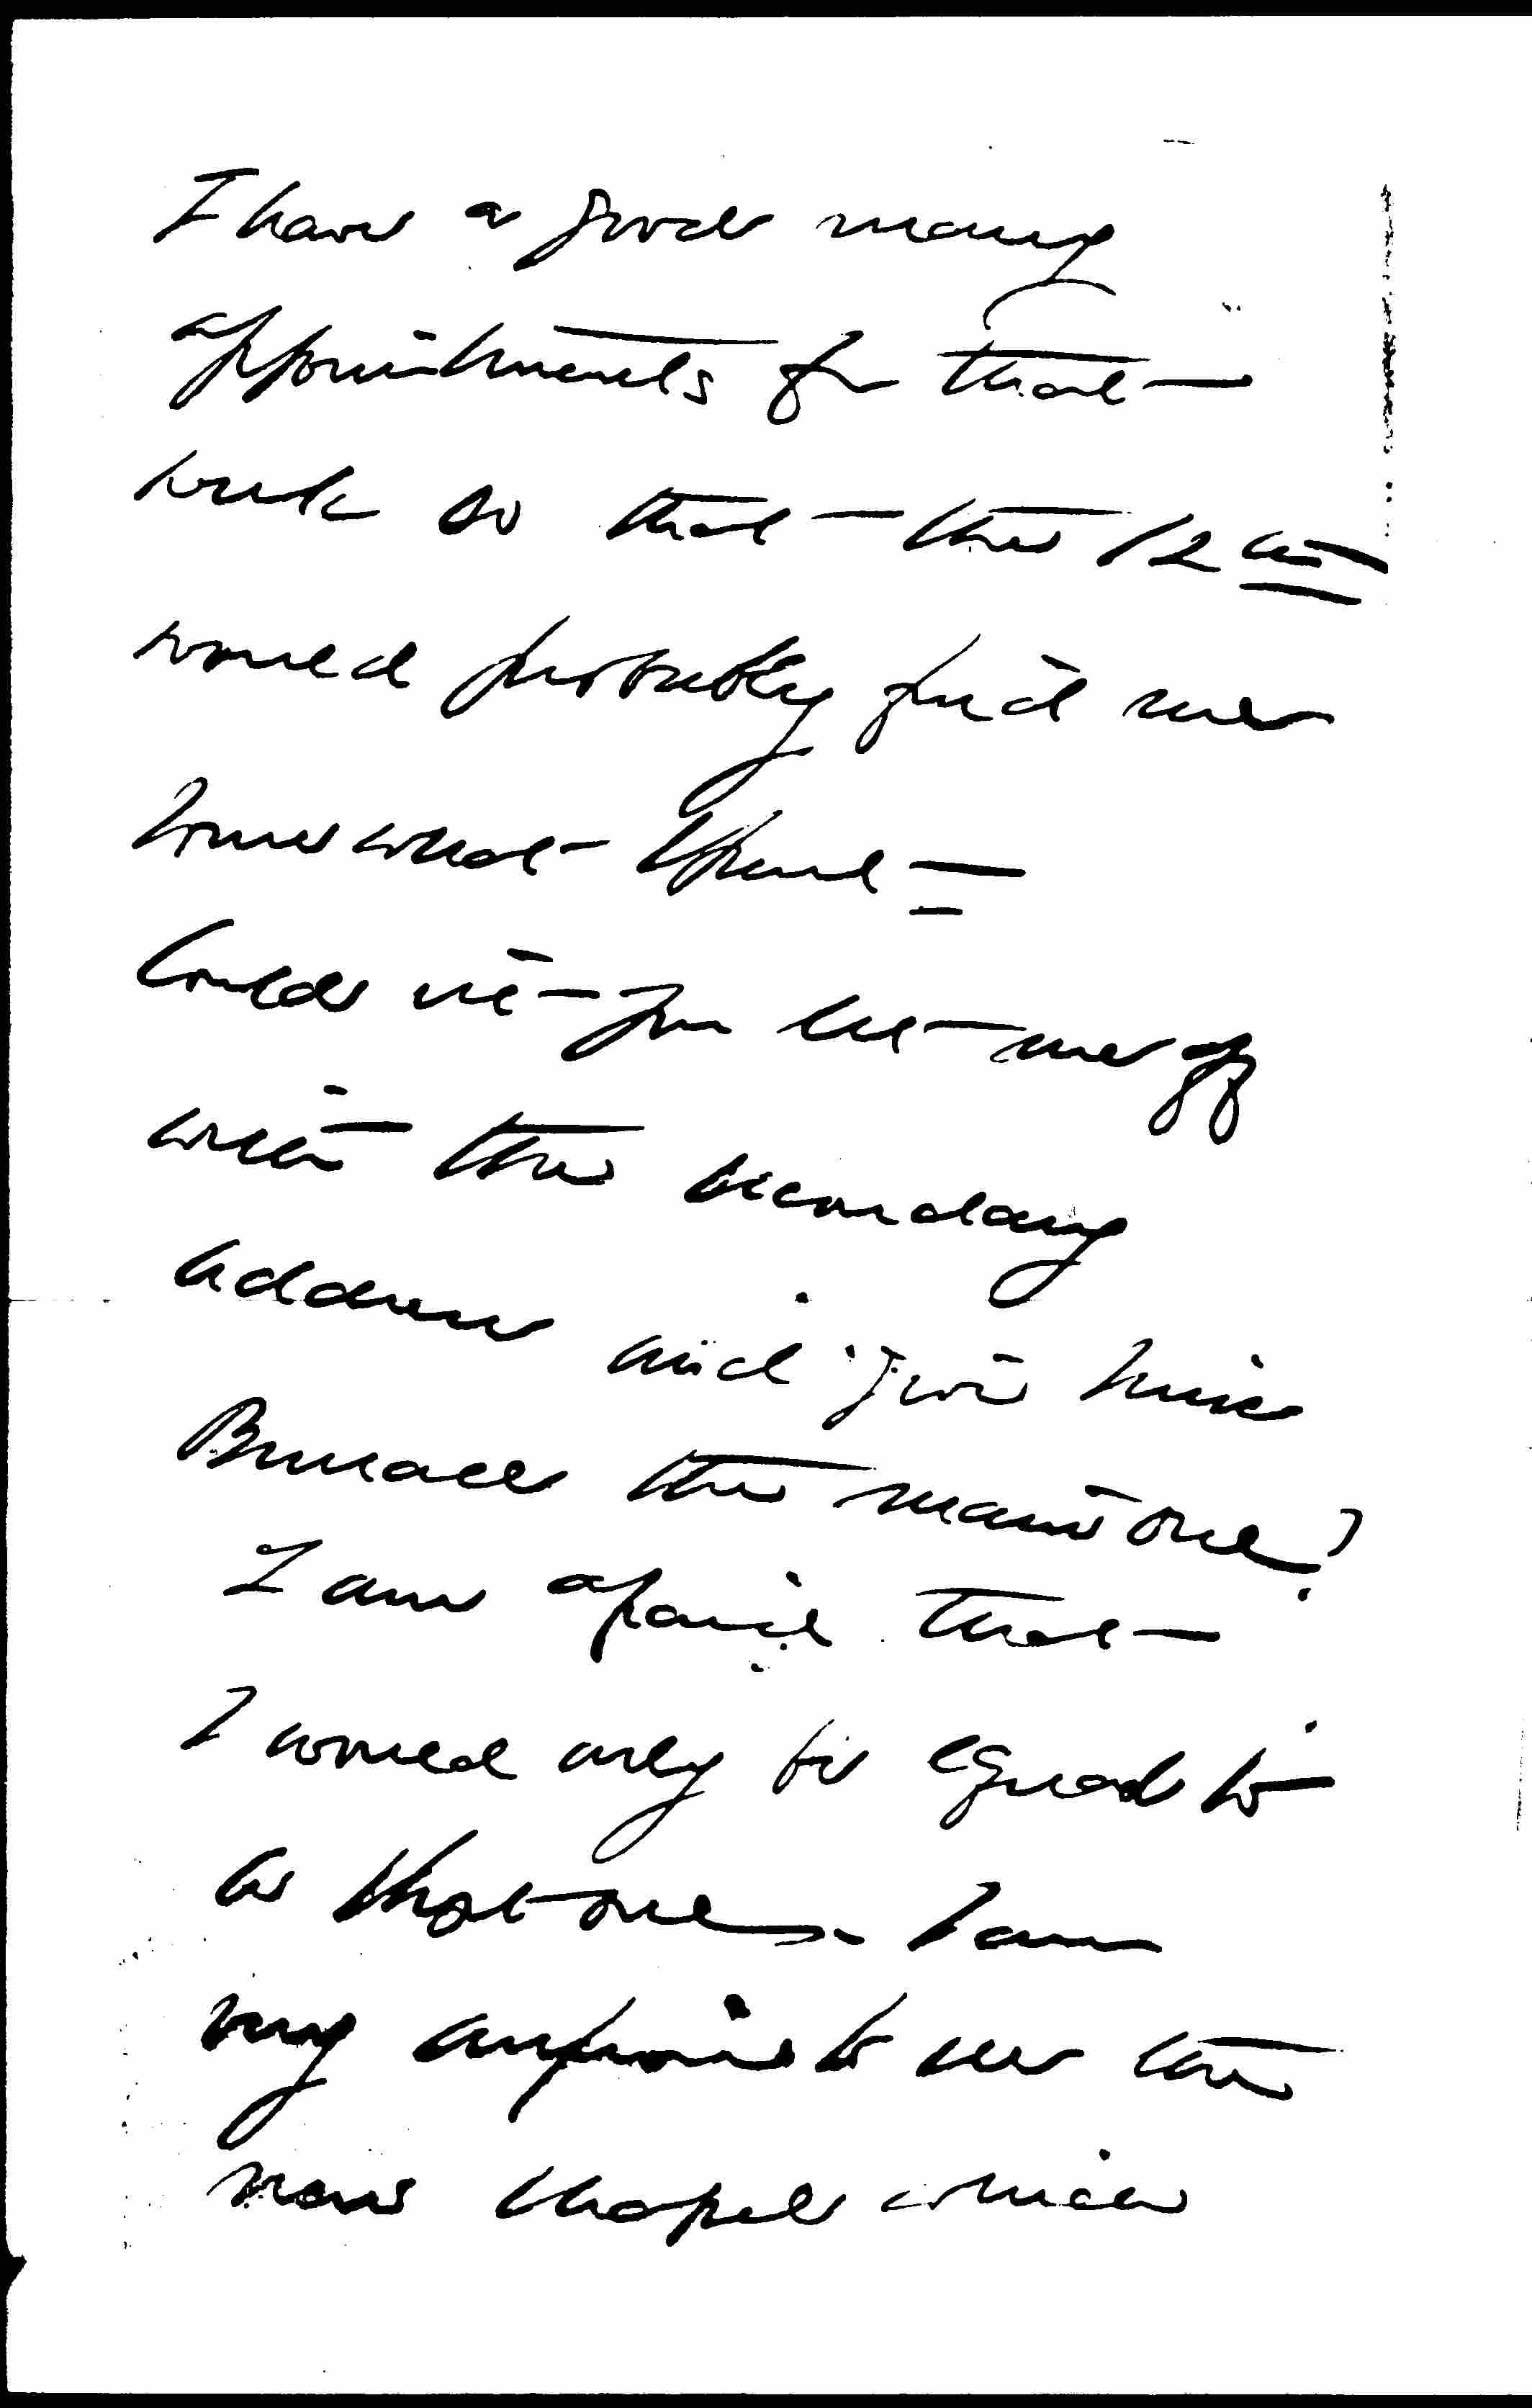 I have a good many
appointments for that
week so that the 12th
would probably find me
somewhat spent
Could not you let me off
with the secondary
address and give him
the main one?
I am afraid that
I would only be equal to
as that one. I am
very anxious to see the
new chapel which